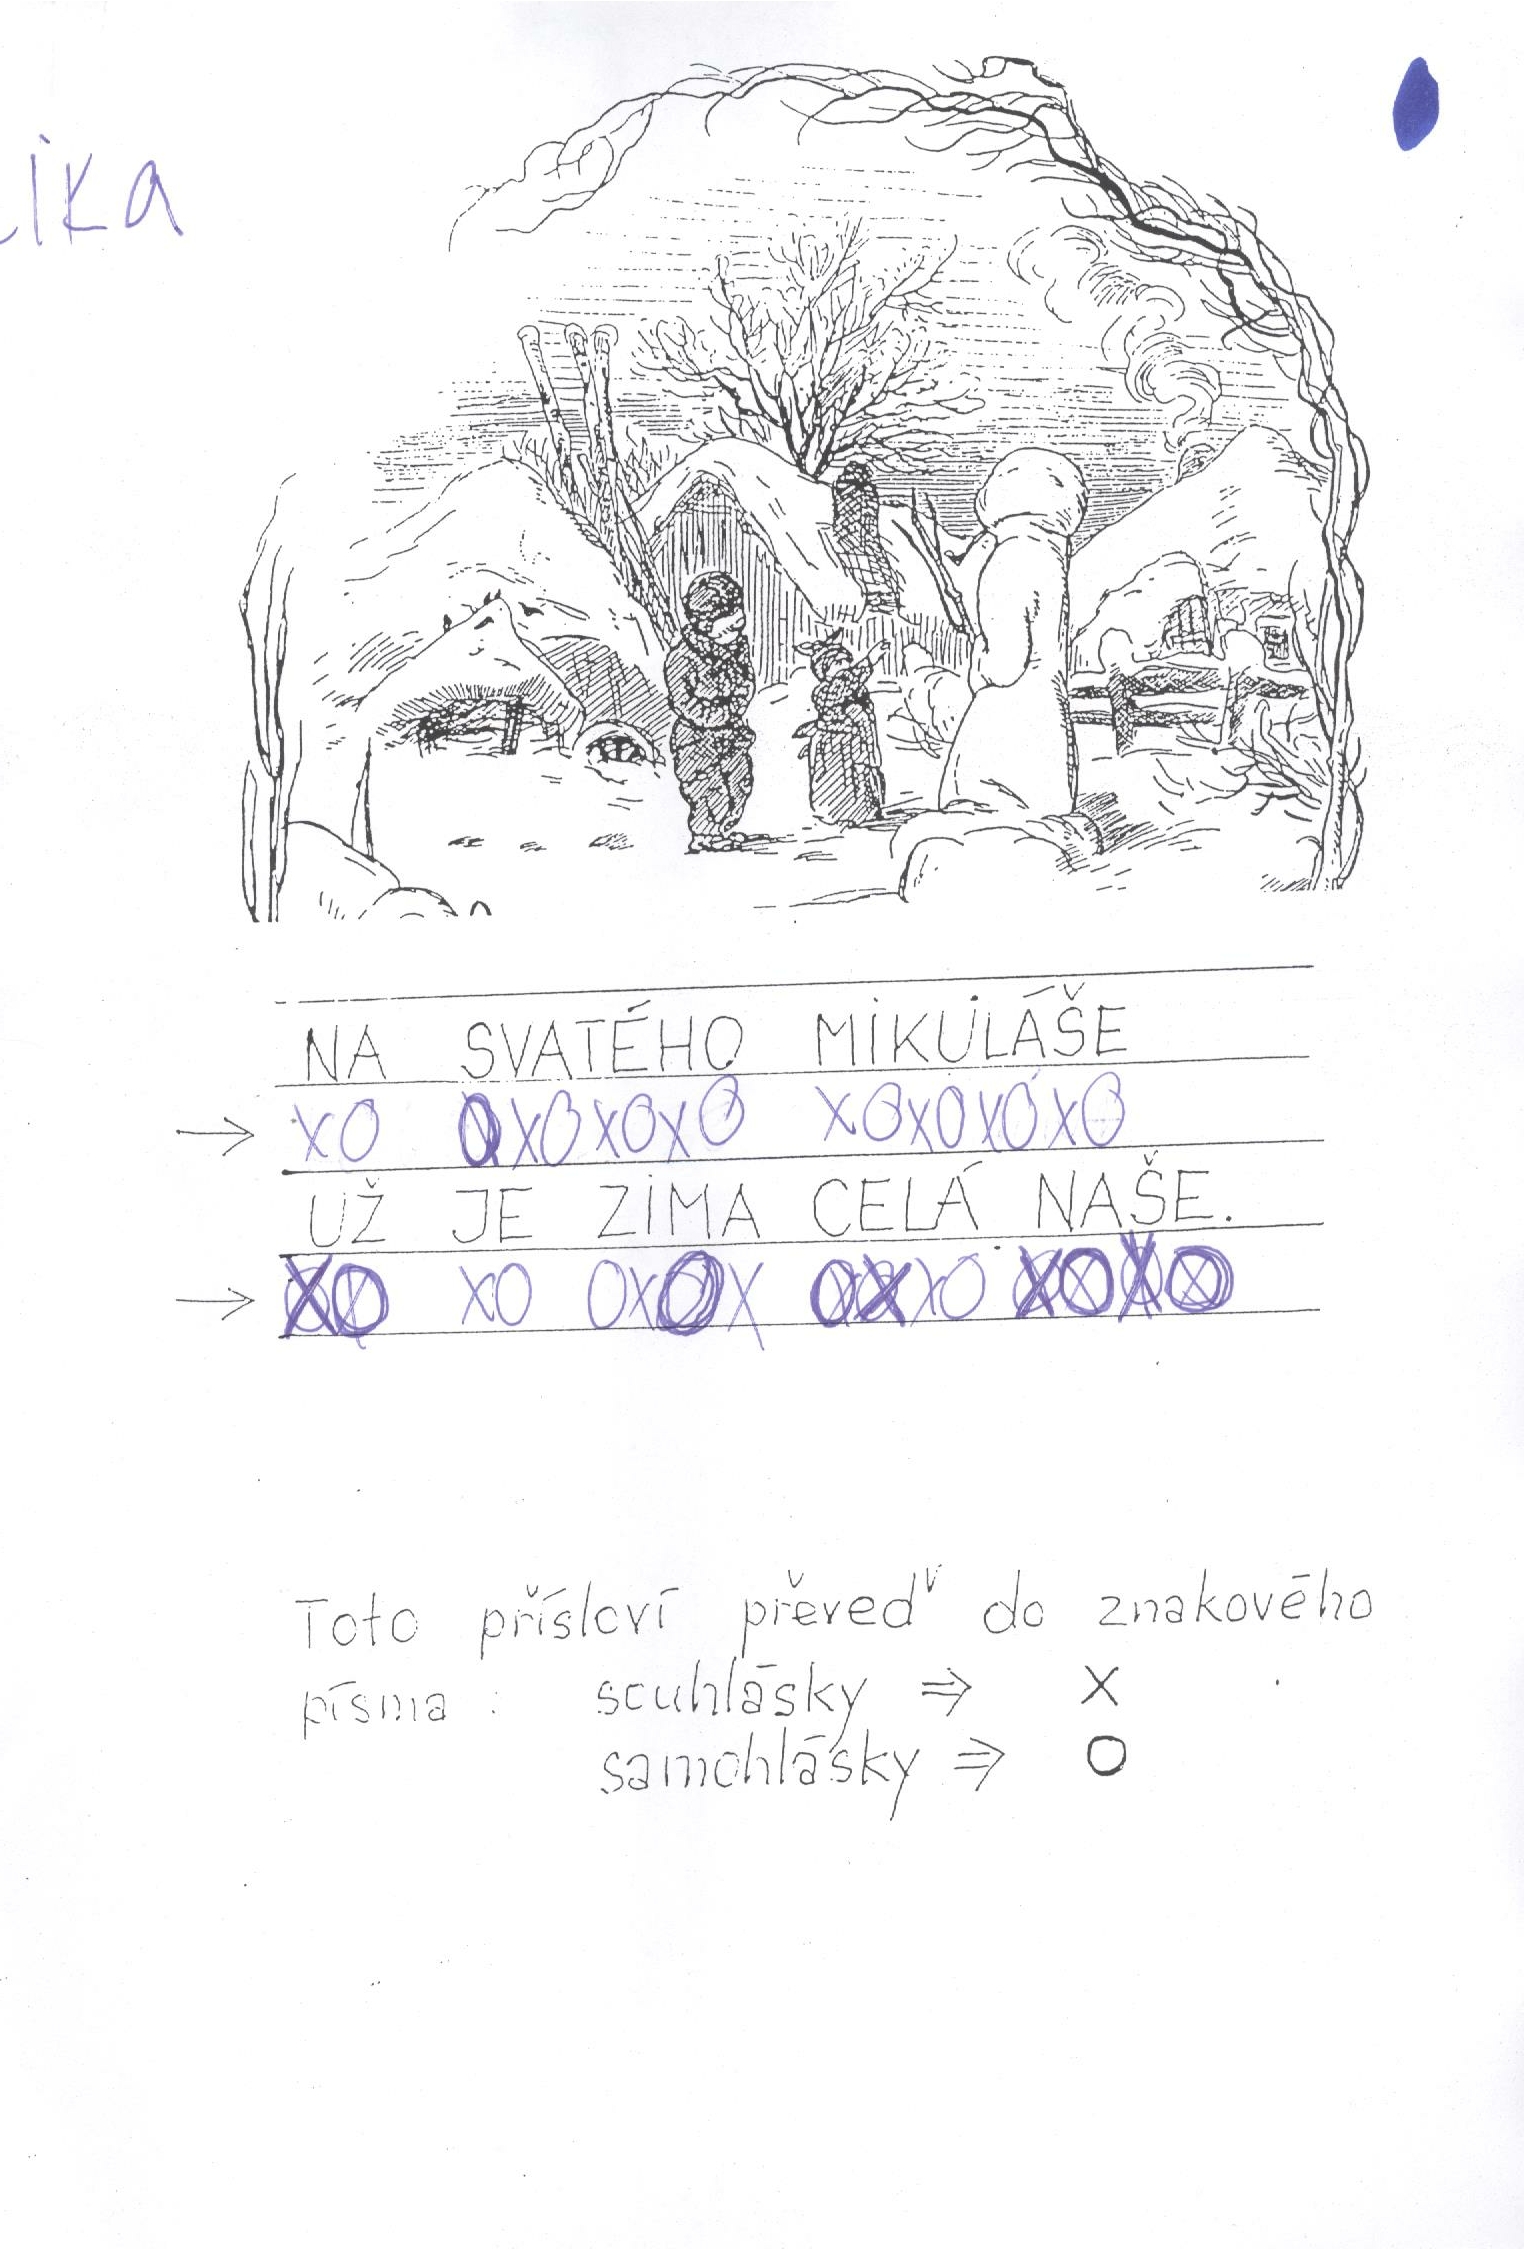 ika
NA SVATÉHO MIKULÁŠE
→ XO OXOXOXO XOXOXOXO
UŽ JE ZIMA CELÁ NAŠE.
→ XO XO OXOX OXXO XOXO
Toto přísloví převeď do znakového
písma: souhlásky ⇒ X
samohlásky ⇒ O